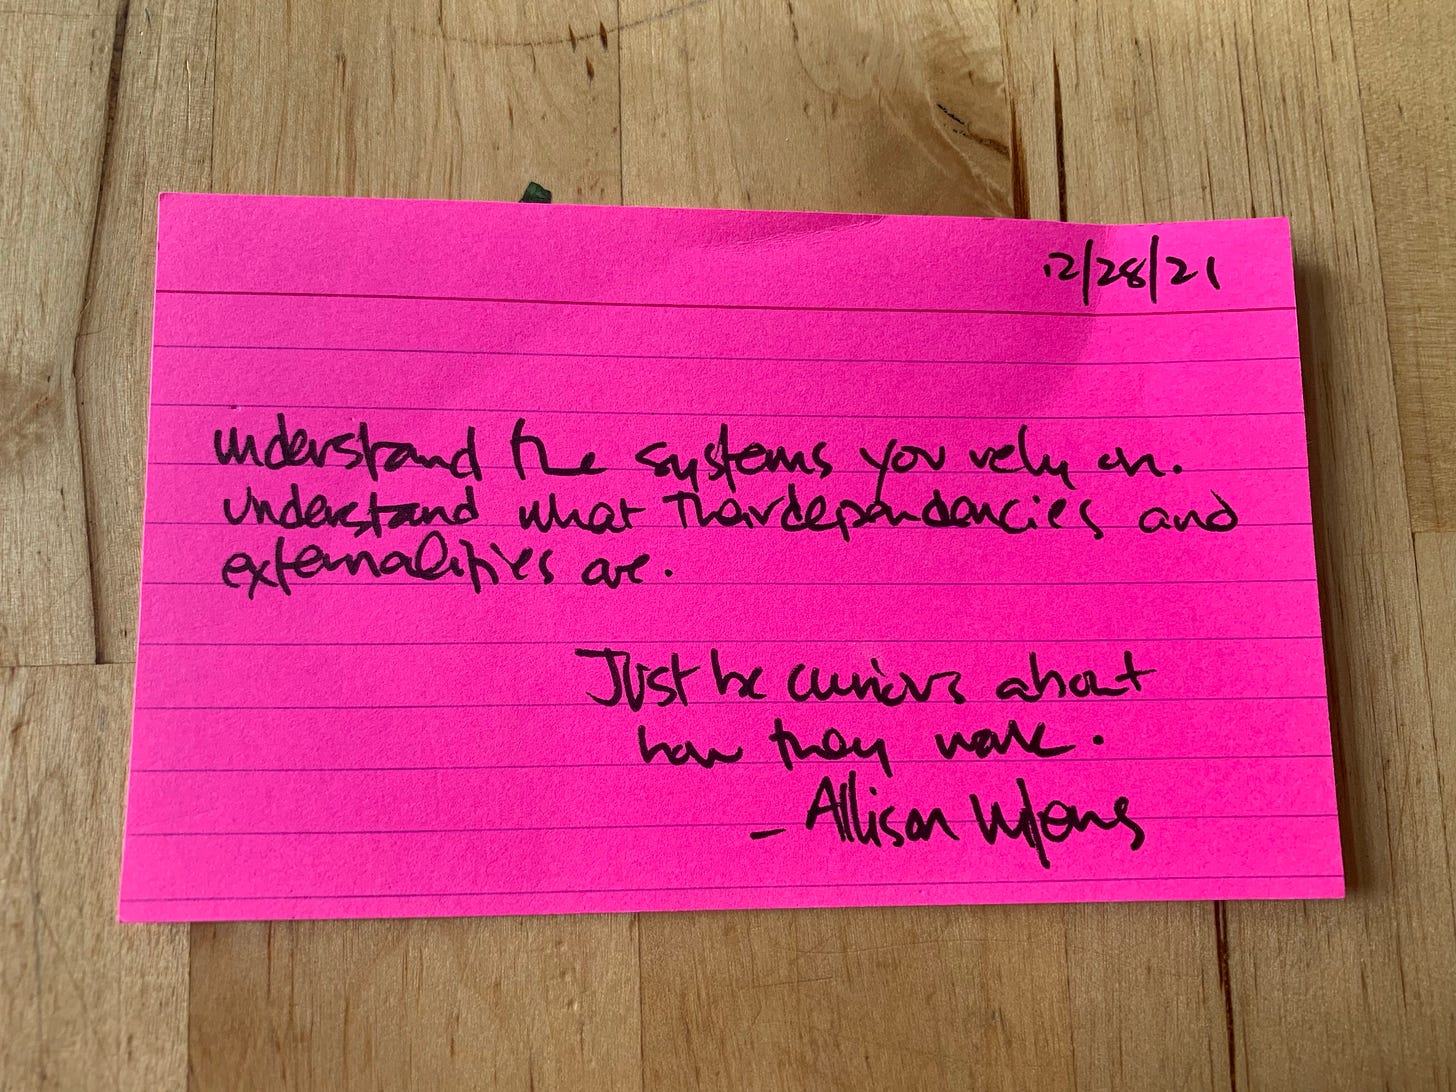 12/28/21
understand the systems you rely on.
understand what their dependencies and
externalities are.
Just be curious about
how they work.
- Allison